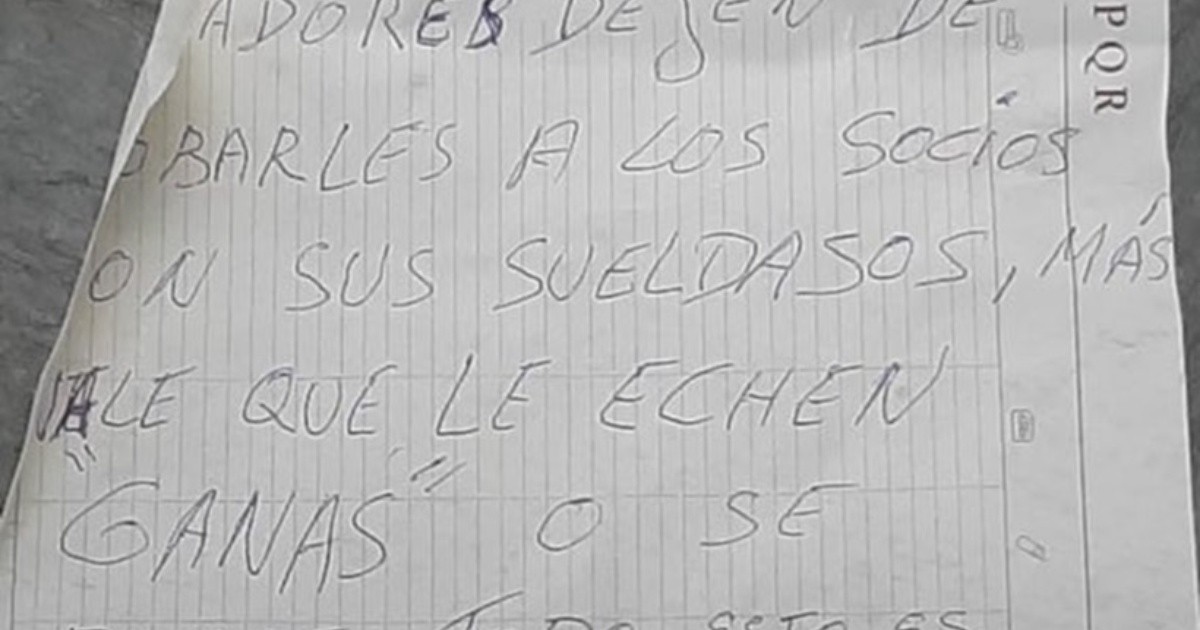 ADORES DEJEN DE
OBARLES A LOS SOCIOS
ON SUS SUELDASOS, MÁS
VALE QUE LE ECHEN
"GANAS" O SE
TODO ESTO ES
PQR